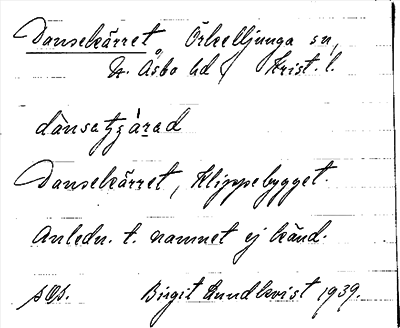 Dansekärret, Örkelljunga sn,
N. Åsbo hd Krist. l.
Dansekärret, Klippebygget.
Anledn. t. namnet ej känd.
Birgit Lundkvist 1939.